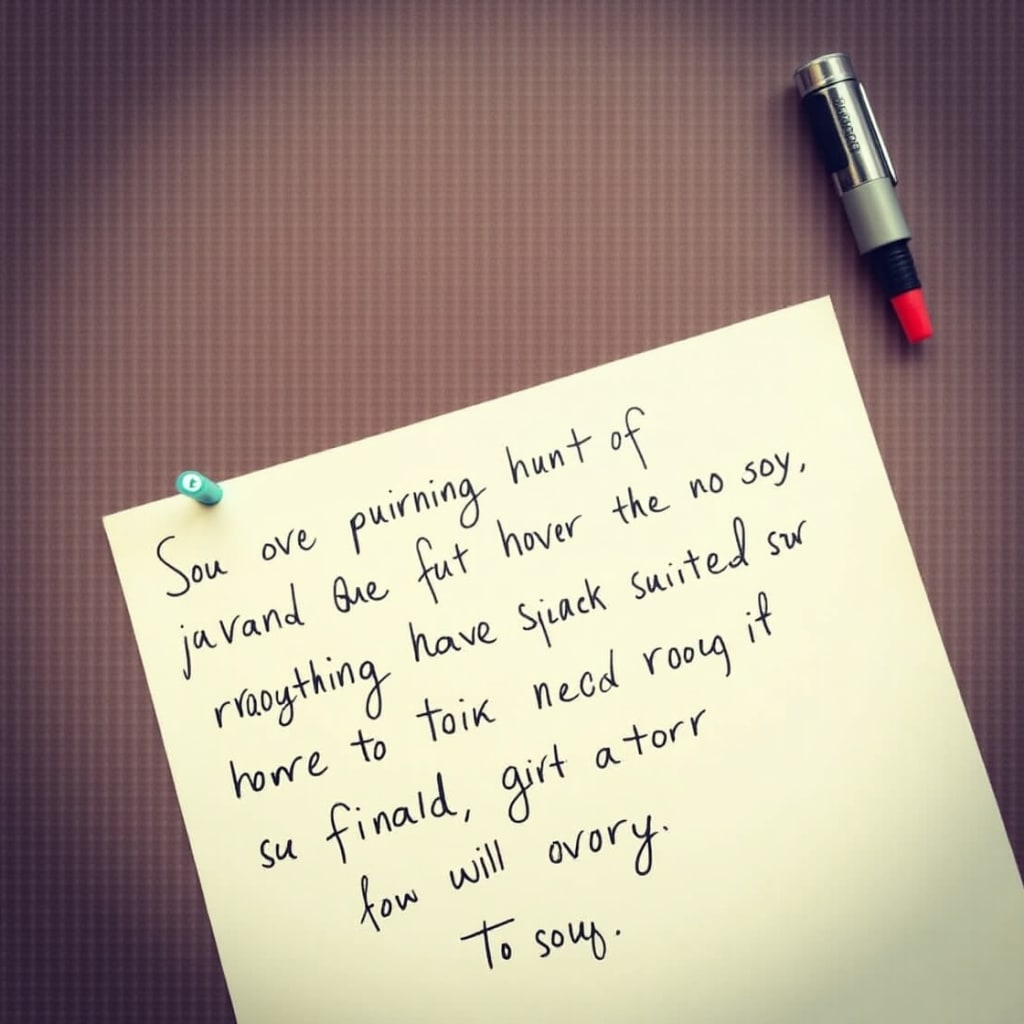 Sou ove puirning hunt of
javand the fut hover the no soy,
rraoything have sjcack suiited sur
howre to toik necd rooug it
su finald, girt a torr
fow will ovory.
To souy.